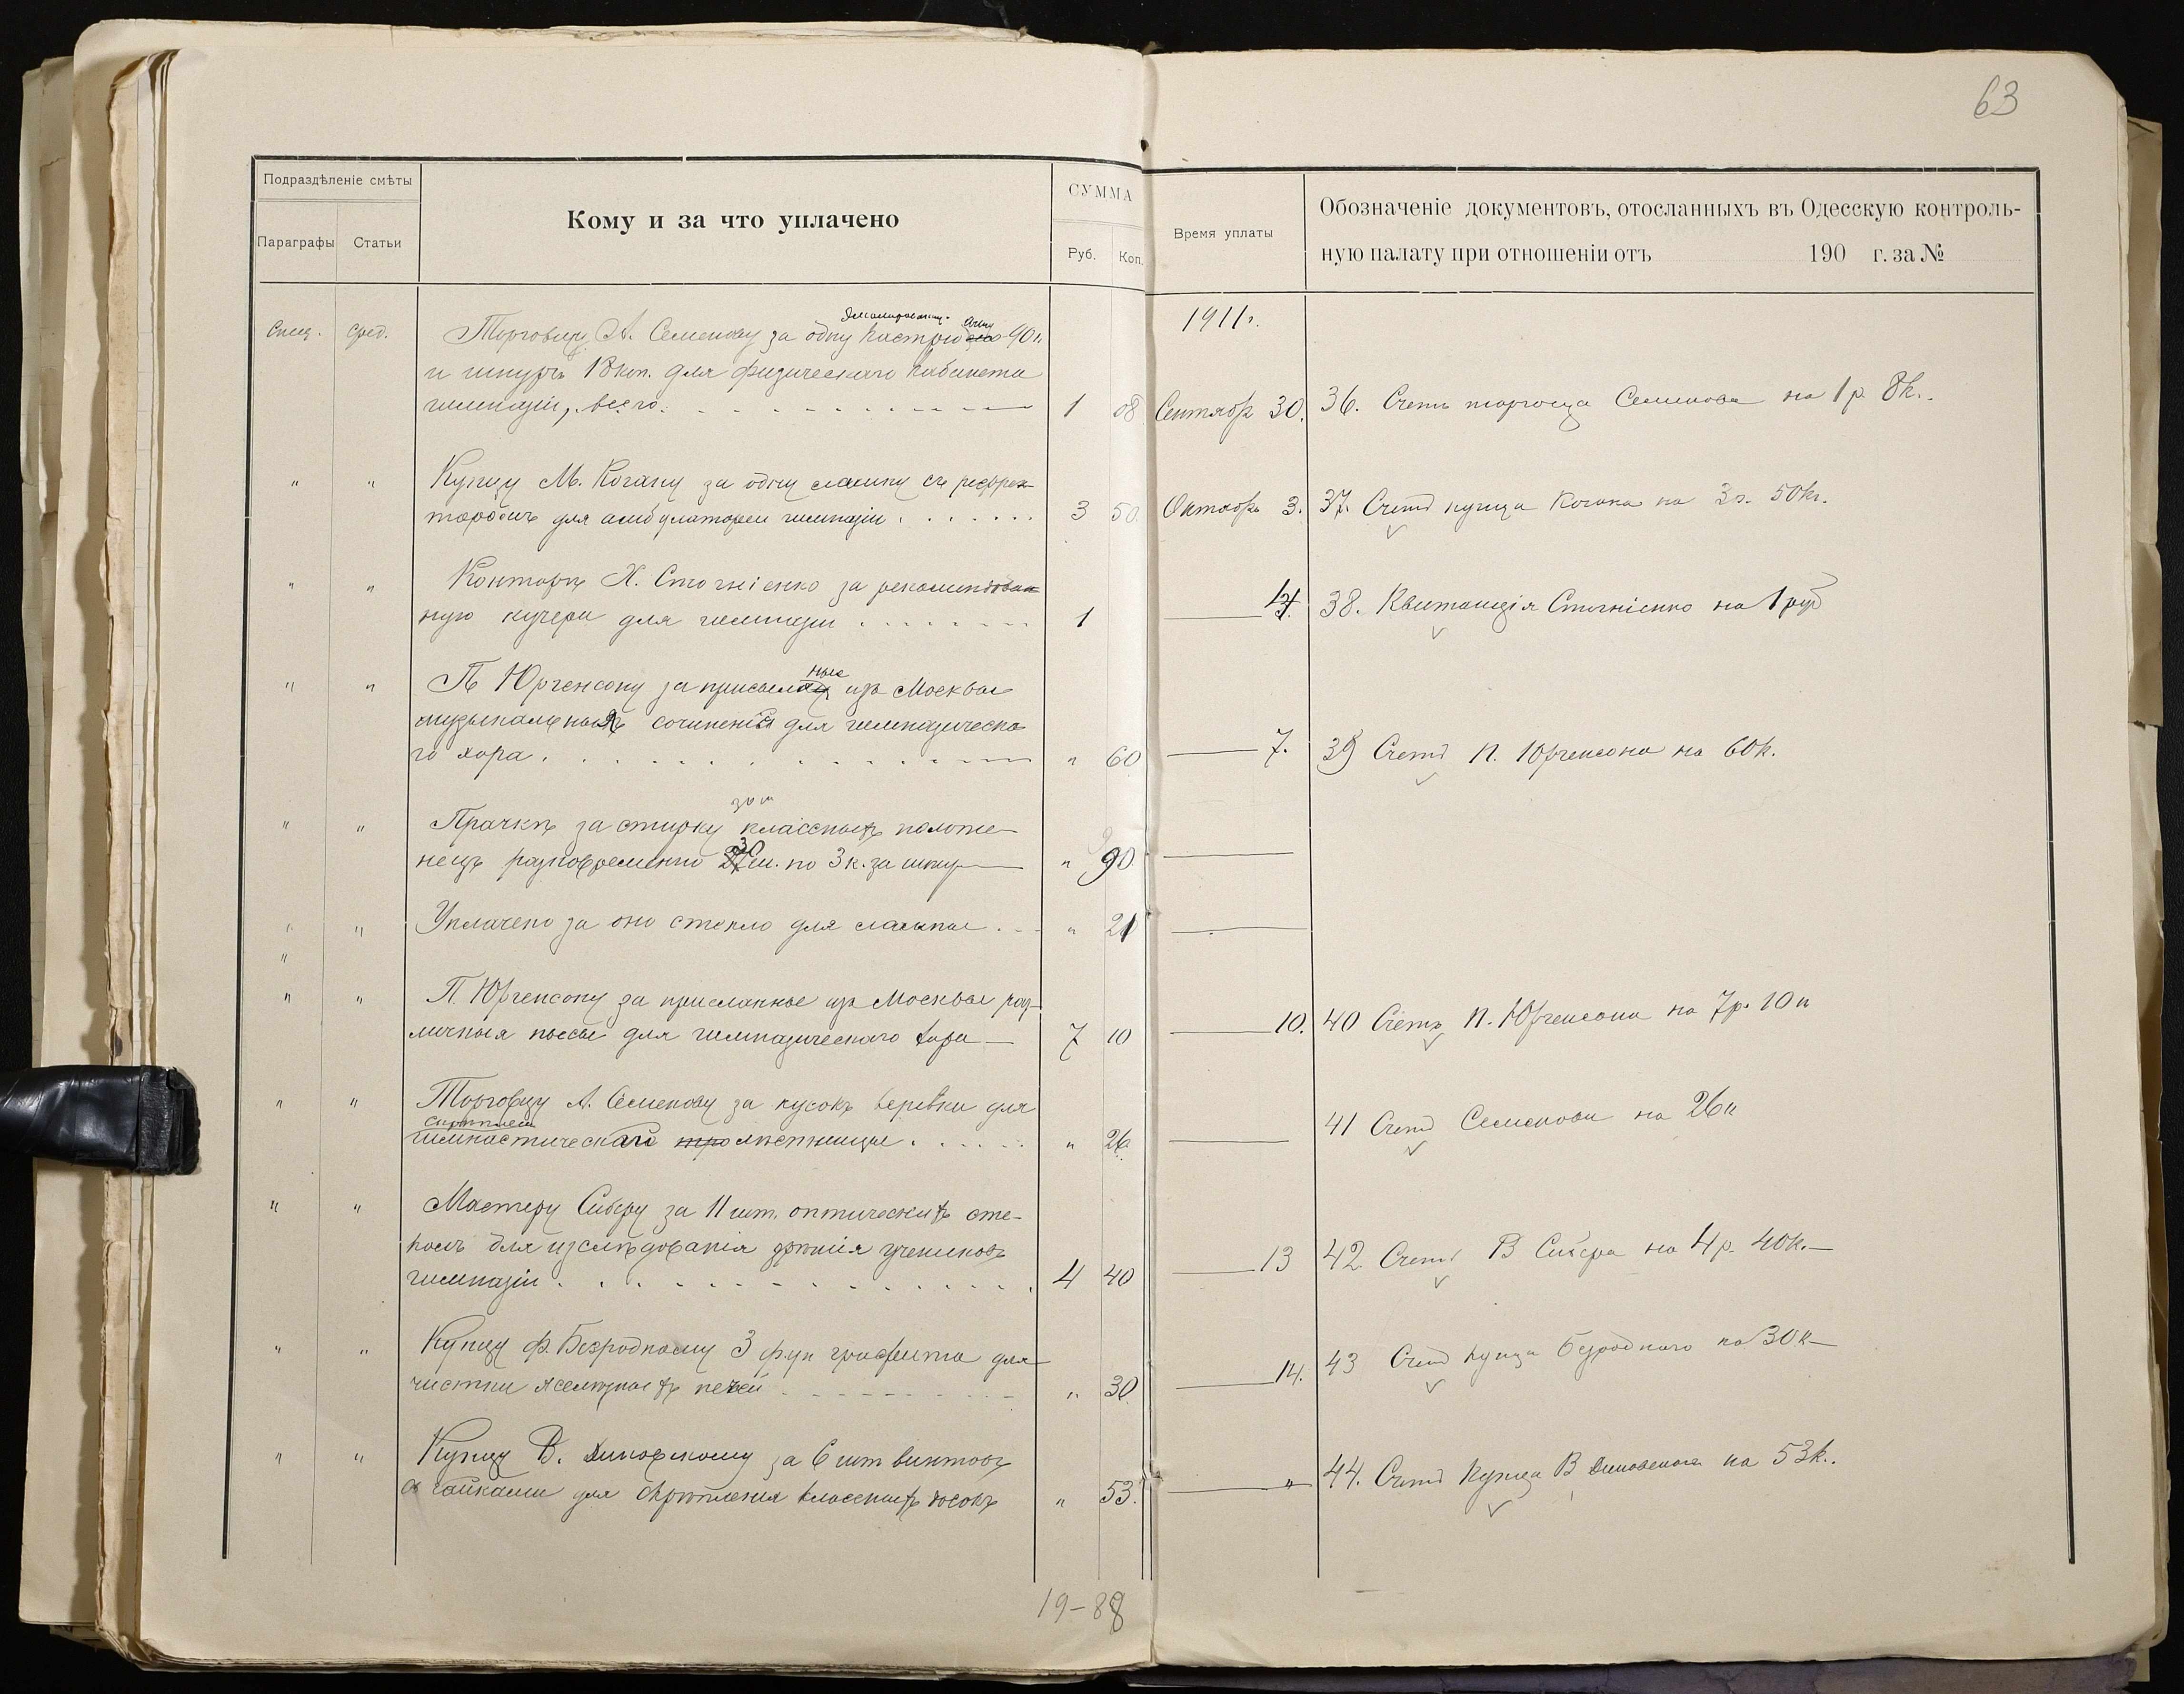 63
Подраздѣленіе смѣты
Параграфы Статьи
Кому и за что уплачено
СУММА
Руб. Коп.
Время уплаты
Обозначеніе документовъ, отосланныхъ въ Одесскую контроль-
ную палату при отношеніи отъ 190 г. за №
1911 г.
Спец. Сред. Торговцу А. Семенову за одну кастрю 90 к
и шнуръ 18 коп. для физическаго кабинета
гимназіи, всего 1 08 Сентябр 30. 36. Счетъ торговца Семенова на 1 р. 8 к.
" " Купцу М. Когану за одну лампу съ рефрек-
торомъ для амбулаторіи гимназіи 3 50 Октябрь 3. 37. Счетъ купца Когана на 3 р. 50 к.
" " Конторѣ Х. Стогніенко за
ную кучера для гимназіи 1 4. 38. Квитанція Стогніенко на 1 руб
" " П Юргенсону за присланные изъ Москвы
музыкальныя сочиненія для гимназическа
го хора " 60 7. 39 Счетъ П. Юргенсона на 60 к.
" " Прачкѣ за стирку классныхъ полоте-
нецъ разновременно 30 ш. по 3 к. за штуку " 90
" " Уплачено за одно стекло для лампы " 21
"
" " П Юргенсону за присланные изъ Москвы раз-
личныя пьесы для гимназическаго хора 7 10 10. 40 Счетъ П. Юргенсона на 7 р. 10 к
" " Торговцу А. Семенову за кусокъ веревки для
гимнастической лѣстницы " 26 41 Счетъ Семенова на 26 к
" " Мастеру Сиберу за 11 шт. оптическихъ сте-
колъ для изслѣдованія зрѣнія учениковъ
гимназіи 4 40 13 42 Счетъ В Сибера на 4 р. 40 к.
" " Купцу Ф. Безродному 3 фун графита для
чистки желѣзныхъ печей " 30 14. 43 Счетъ купца Безроднаго на 30 к
" " Купцу В. Диновскому за 6 шт винтовъ
съ гайками для скрѣпленія классныхъ досокъ " 53. " 44. Счетъ Купца В Диновскаго на 53 к.
19-88